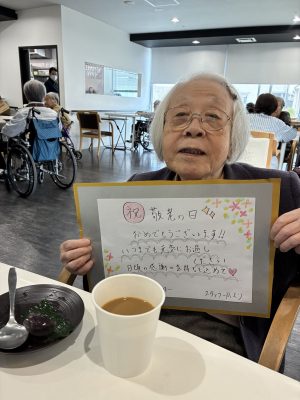 祝 敬老の日
おめでとうございます!!
いつまでも元気にお過し
ください
日頃の感謝の気持ちを込めて♥
スタッフ一同より